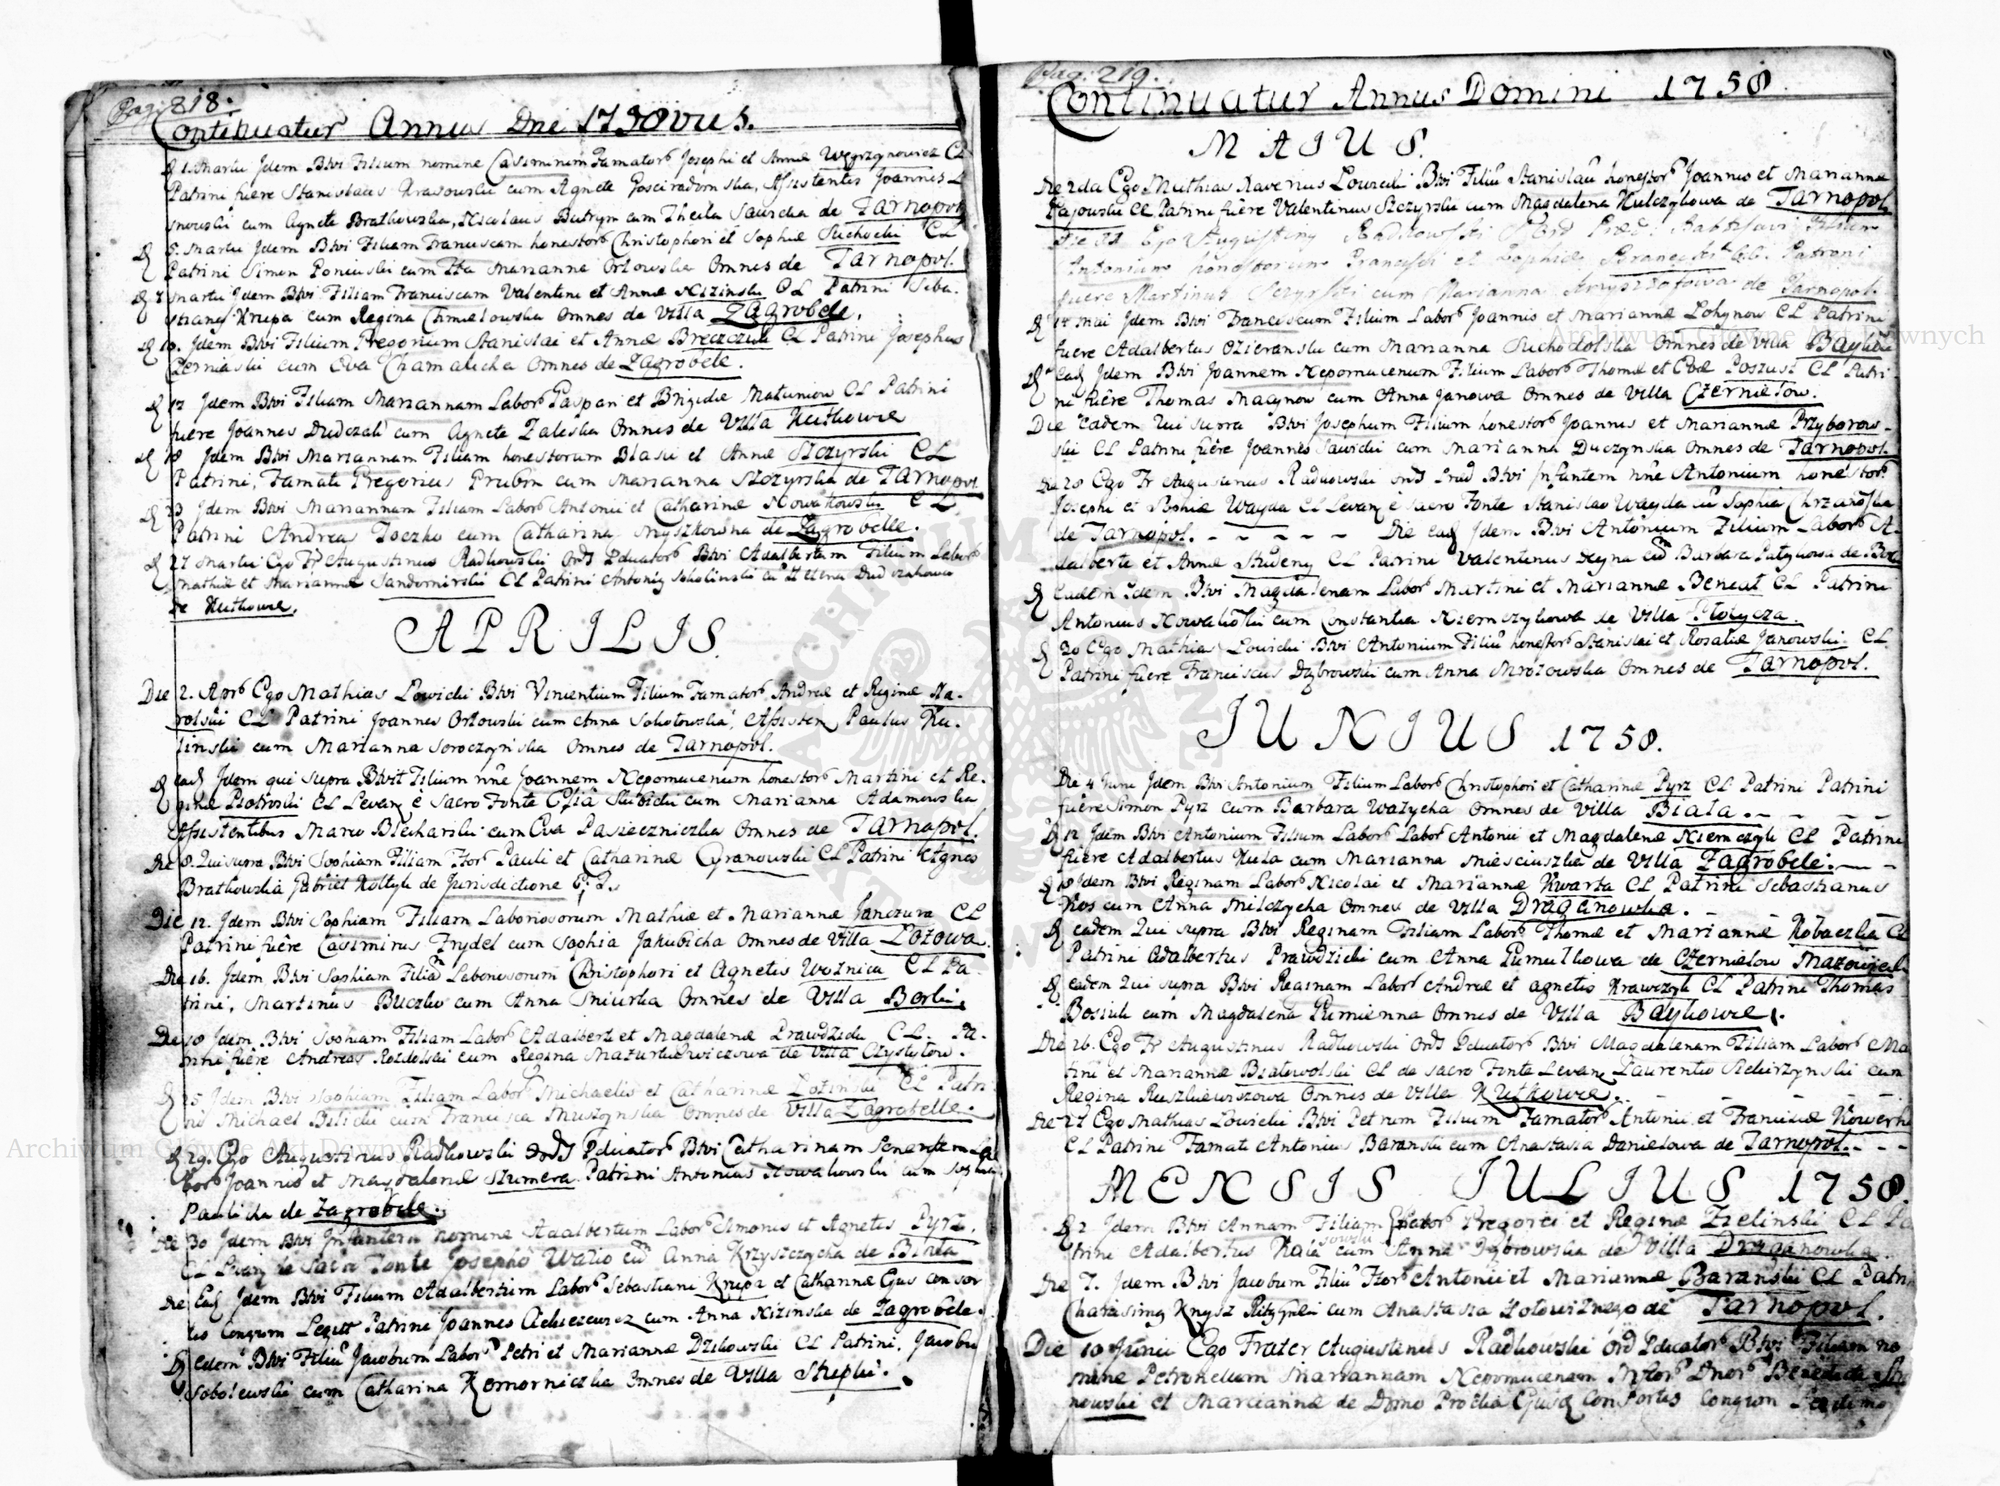 Pag: 218.
Continuatur Annus Dni 1758vus.
D 1 Martii Idem Btvi Filium nomine Casimirum Famator Josephi et Annæ Węgrzynowicz CL
Patrini fuere Stanislaus Krasowski cum Agnete Gosciradomska, Assistentes Joannes
cum Agnete Bratkowska, Nicolaus Butrym cum Thecla Sawicka de Tarnopol
D 5. Martii Idem Btvi Filiam Franciscam honestor Christophori et Sophiæ Suchecki CL
Patrini Simon Poniński cum Marianna Orłowska Omnes de Tarnopol.
D 7 Martii Idem Btvi Filiam Franciscam Valentini et Annæ Nizinski CL Patrini Seba-
stianus Krupa cum Regina Chmielowska Omnes de Villa Zagrobele.
D 10. Idem Btvi Filium Gregorium Stanislai et Annæ CL Patrini Josephus
Czerniaski cum Eva Chamalicha Omnes de Zagrobele.
D 12 Idem Btvi Filiam Mariannam Labor Gaspari et Brigidæ Matuniow CL Patrini
fuere Joannes Dudczak cum Agnete Zaleska Omnes de Villa Kutkowce
D 18 Idem Btvi Mariannam Filiam honestorum Blasii et Annæ Szczyrski CL
Patrini, Famati Gregorius Grubin cum Marianna Szczyrska de Tarnopol
D 23 Idem Btvi Mariannam Filiam Labor Antonii et Catharinæ Nowakowski CL
Patrini Andreas Toczko cum Catharina Myszkowna de Zagrobelle.
D 27 Martii Ego Fr Augustinus Radkowski Ord Pdicator Btvi Adalbertum Filium Labor
Mathiæ et Mariannæ Sandomirski CL Patrini Antonius Sokolinski cum Helena Dudczakowa
de Kutkowce.
APRILIS.
Die 2. Apr Ego Mathias Łowicki Btvi Vincentium Filium Famator Andreæ et Reginæ Na-
rolski CL Patrini Joannes Orłowski cum Anna Sokołowska, Assisten Paulus Ku-
linski cum Marianna Soroczynska Omnes de Tarnopol.
D ead Idem qui supra Btvit Filium nne Joannem Nepomucenum honestor Martini et Re-
ginæ Piotroski CL Levan è Sacro Fonte Słubicki cum Marianna Adamowska
Assistentibus Marco Blecharski cum Eva Pasieczniczka Omnes de Tarnopol.
Die 8. Qui supra Btvi Sophiam Filiam Hor Pauli et Catharinæ Cyranowski CL Patrini Agnes
Bratkowska Gabriel Kołtyk de Jurisdictione
Die 12. Idem Btvi Sophiam Filiam Laboriosorum Mathiæ et Mariannæ Janczura CL
Patrini fuere Casimirus Frydel cum Sophia Jakubicha Omnes de Villa Łozowa.
Die 16. Idem Btvi Sophiam Filiam Laboriosorum Christophori et Agnetis Woznica CL Pa-
trini, Martinus Buczko cum Anna Smiurka Omnes de Villa Berki,
Die 18 Idem Btvi Sophiam Filiam Labor Adalberti et Magdalenæ Prawdzicki CL. Pa-
trini fuere Andreas Rozdolski cum Regina Mazurkiewiczowa de Villa Czystyłow.
D 25 Idem Btvi Sophiam Filiam Labor Michaelis et Catharinæ Łozinski CL Patri-
ni Michael Bilicki cum Francisca Muszynska Omnes de Villa Zagrobelle.
D 29. Ego Augustinus Radkowski Ords Pdicator Btvi Catharinam Senensem La-
bor Joannis et Magdalenæ Szumera Patrini Antonius Nowakowski cum Sophia
Paulicka de Zagrobele.
Die 30 Idem Btvi Infantem nomine Adalbertum Labor Simonis et Agnetis Pyrz.
CL Levan de Sacro Fonte Joseph Walio cum Anna Krzyszczycha de Biała
Die Ead Idem Btvi Filium Adalbertum Labor Sebastiani Krupa et Catharinæ Ejus consor
tis Congium Legitt Patrini Joannes cum Anna Nizinska de Zagrobele.
D eadem Btvi Filium Jacobum Labor Petri et Mariannæ Dzikowski CL Patrini, Jacobus
Sobolewski cum Catharina Komorniczka Omnes de Villa Shepki.
Pag. 219.
Continuatur Annus Domini 1758.
MAIUS.
Die 2da Ego Mathias Xaverius Łowicki Btvi Filiu Stanislau honestor Joannis et Mariannæ
Gajowski CL Patrini fuère Valentinus Szczyrski cum Magdalena Kulczykowa de Tarnopol
Die Ego Augustinus Radkowski Ord Præd. Babtisavi Filium
Antonium honestorum Francisci et Sophiæ CL. Patrini
fuere Martinus Sczyrski cum Marianna Krzysztofowa de Tarnopol.
D 14 Maii Idem Btvi Franciscum Filium Labor Joannis et Mariannæ Łohynow CL Patrini
fuere Adalbertus Ozieranski cum Marianna Suchodolska Omnes de Villa Baykow
D Ead Idem Btvi Joannem Nepomucenum Filium Labor Thomæ et Evæ Poszust CL Patri-
ni fuère Thomas Macynow cum Anna Janowa Omnes de Villa Czernielow.
Die Eadem Qui supra Btvi Josephum Filium honestor Joannis et Mariannæ Przyborow-
ski CL Patrini fuère Joannes Sawicki cum Marianna Duczynska Omnes de Tarnopol.
Die 28 Ego Fr Augustinus Radkowski ord Pred Btvi Infantem nne Antonium honestor
Josephi et Sophiæ Wayda CL Levan è Sacro Fonte Stanislao Wayda cu Sophia Chrzanoska
de Tarnopol. - - - - - Die Ead Idem Btvi Antonium Filium Labor A-
dalberti et Annæ Studeny CL Patrini Valentinus Heyna cum Barbara Patykowa de
D Eadem Idem Btvi Magdalenam Labor Martini et Mariannæ Beneat CL Patrini
Antonius Nowakowski cum Constantia Niemczykowa de Villa Płotycza.
D 30 Ego Mathias Łowicki Btvi Antonium Filiu honestor Stanislai et Rosaliæ Janowski. CL
Patrini fuere Franciscus Dąbrowski cum Anna Mrozowska Omnes de Tarnopol.
JUNIUS 1758.
Die 4 Junii Idem Btvi Antonium Filium Labor Christophori et Catharinæ Pyrz CL Patrini Patrini
fuère Simon Pyrz cum Barbara Watycha Omnes de Villa Biała. - - - -
D 12 Idem Btvi Antonium Filium Labor Labor Antonii et Magdalenæ Niemczyk CL Patrini
fuere Adalbertus Kula cum Marianna Miesciuszka de Villa Zagrobele. - -
D 18 Idem Btvi Reginam Labor Nicolai et Mariannæ Kwarta CL Patrini Sebastianus
Kos cum Anna Milczycha Omnes de Villa Draganowka.
D eadem Qui supra Btvi Reginam Filiam Labor Thomæ et Mariannæ Kobaczka CL
Patrini Adalbertus Prawdzicki cum Anna Gumulkowa de Czernielow Mazowiecki
D eadem Qui supra Btvi Reginam Labor Andreæ et Agnetis Krawczyk CL Patrini Thomas
Bosiuk cum Magdalena Gumienna Omnes de Villa Baykowce.
Die 26. Ego Fr Augustinus Radkowski Ords Pdicator Btvi Magdalenam Filiam Labor Ma-
tini et Mariannæ Białowolski CL de Sacro Fonte Levan Laurentio Siekirzynski cum
Regina Ruszkiewiszowa Omnes de Villa Kutkowce. - - - -
Die 27 Ego Mathias Łowicki Btvi Petrum Filium Famator Antonii et Franciscæ Kowerko
CL Patrini Famati Antonius Baranski cum Anastasia Danielowa de Tarnopol. - - -
MENSIS JULIUS 1758.
D 2 Idem Btvi Annam Filiam Labor Gregorii et Reginæ Zielinski CL Pa
trini Adalbertus cum Anna Dąbrowska de Villa Draganowka.
Die 7. Idem Btvi Jacobum Filiu Hor Antonii et Mariannæ Baranski CL Patri
Charissimg Knysz cum Anastasia Łotowiznego de Tarnopol.
Die 10 Junii Ego Frater Augustinus Radkowski Ord Pdicator Btvi Filiam no
mine Petronellam Mariannam Nepomucenam Dnor Benedicti
nowski et Mariannæ de Domo Ejusq Consortis Congium Legitimo
Archiwum Główne Akt Dawnych
Archiwum Główne Akt Dawnych